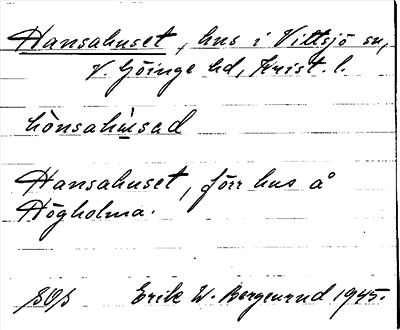 Hansahuset, hus i Vittsjö sn,
V. Göinge hd, Krist. l.
hònsahùsad
Hansahuset, förr hus å
Högholma.
Erik W. Bergenrud 1945.